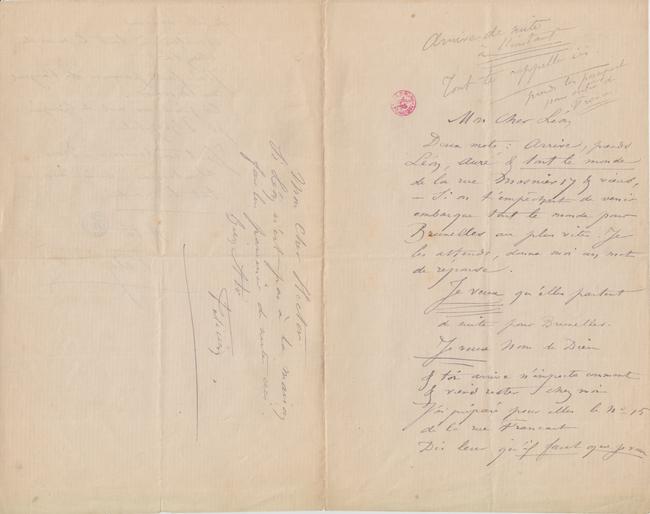 Arrive de suite
à l'instant
Tout te rappelle ici.
prends ton passeport
pour
France
Mon Cher Léon
Deux mots : Arrive, prends
Léon, Auré & tout le monde
de la rue Mosnier 17 & viens,
– Si on t'empêchait de venir
embarque tout le monde pour
Bruxelles au plus vite. Je
les attends, donne moi un mot
de réponse.
Je veux qu'elles partent
de suite pour Bruxelles.
Je veux Nom de Dieu
& toi arrive n'importe comment
& viens rester chez moi
J'ai préparé pour elles le No 15
de la rue
Dis leur qu'il faut que
Mon cher Hector
Si Léon n'est pas à la maison
fais lui parvenir de suite ceci.